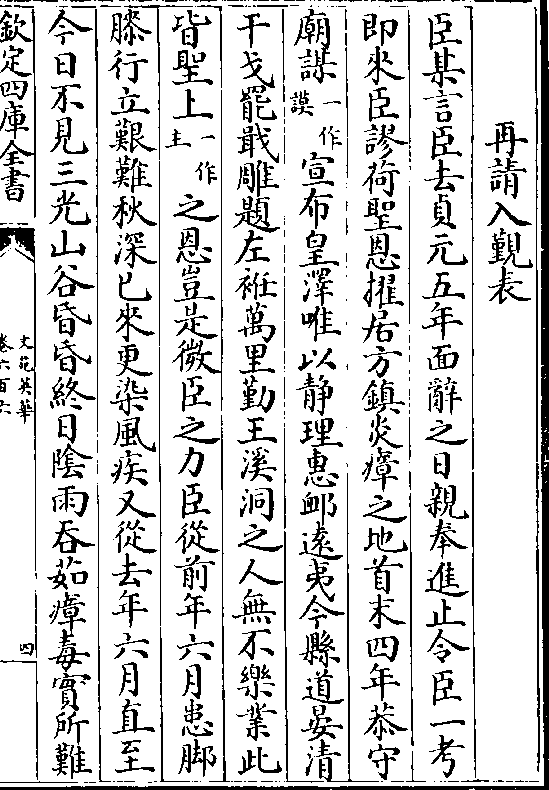 再請入覲表
臣某言臣去貞元五年面辭之日親奉進止令臣一考
即來臣謬荷聖恩擢居方鎮炎瘴之地首末四年恭守
廟謀一作謨宣布皇澤唯以静理惠䘏逺夷今縣道晏清
干戈罷戢雕題左袵萬里勤王溪洞之人無不樂業此
皆聖上一作主之恩豈是微臣之力臣從前年六月患脚
膝行立艱難秋深已來更染風疾又從去年六月直至
今日不見三光山谷昏昏終日陰雨吞茹瘴毒實所難
欽定四庫全書
文苑英華
卷六百六
四